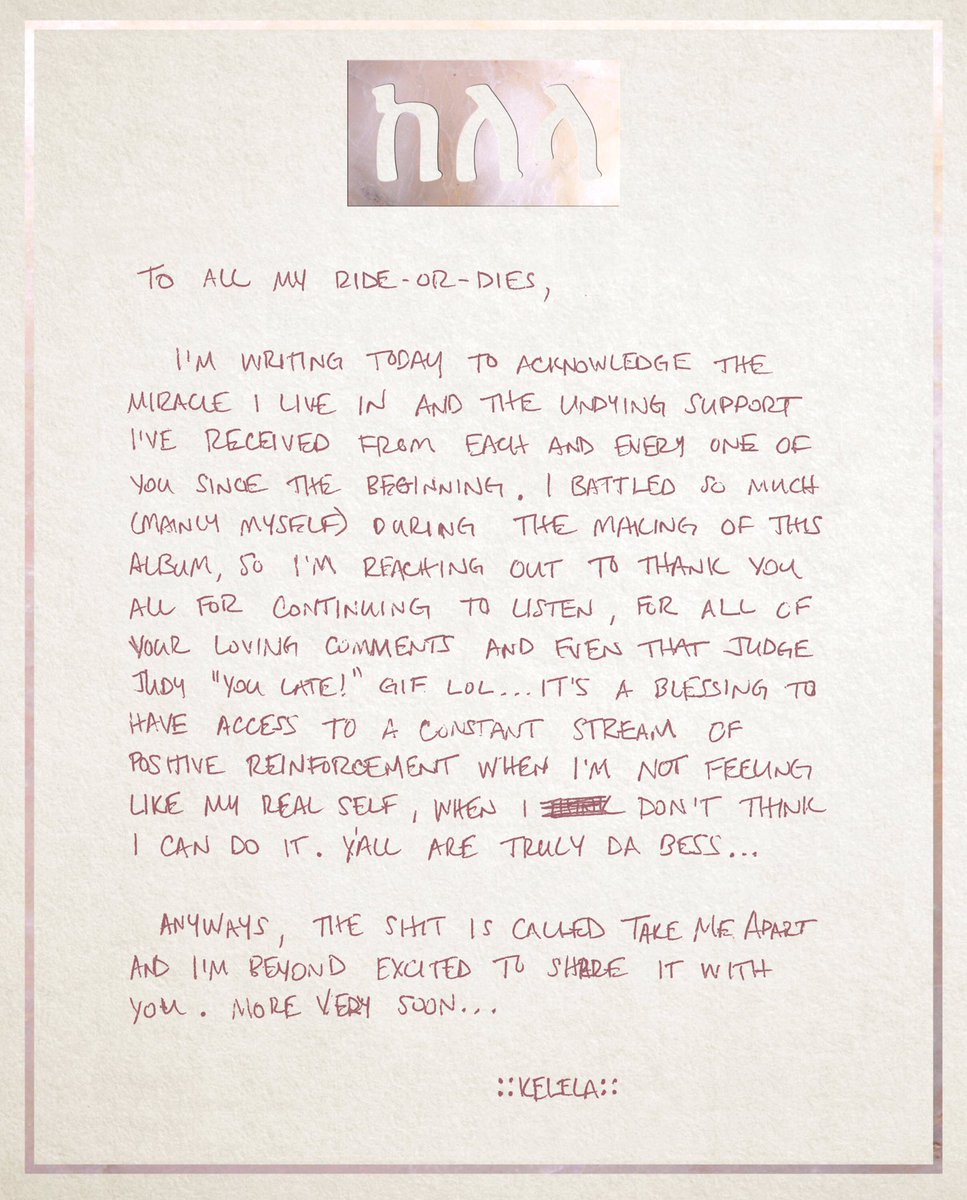 ከለለ
TO ALL MY RIDE-OR-DIES,
I'M WRITING TODAY TO ACKNOWLEDGE THE
MIRACLE I LIVE IN AND THE UNDYING SUPPORT
I'VE RECEIVED FROM EACH AND EVERY ONE OF
YOU SINCE THE BEGINNING. I BATTLED SO MUCH
(MAINLY MYSELF) DURING THE MAKING OF THIS
ALBUM, SO I'M REACHING OUT TO THANK YOU
ALL FOR CONTINUING TO LISTEN, FOR ALL OF
YOUR LOVING COMMENTS AND EVEN THAT JUDGE
JUDY "YOU LATE!" GIF LOL... IT'S A BLESSING TO
HAVE ACCESS TO A CONSTANT STREAM OF
POSITIVE REINFORCEMENT WHEN I'M NOT FEELING
LIKE MY REAL SELF, WHEN I DON'T THINK
I CAN DO IT. Y'ALL ARE TRULY DA BESS...
ANYWAYS, THE SHIT IS CALLED TAKE ME APART
AND I'M BEYOND EXCITED TO SHARE IT WITH
YOU. MORE VERY SOON...
::KELELA::